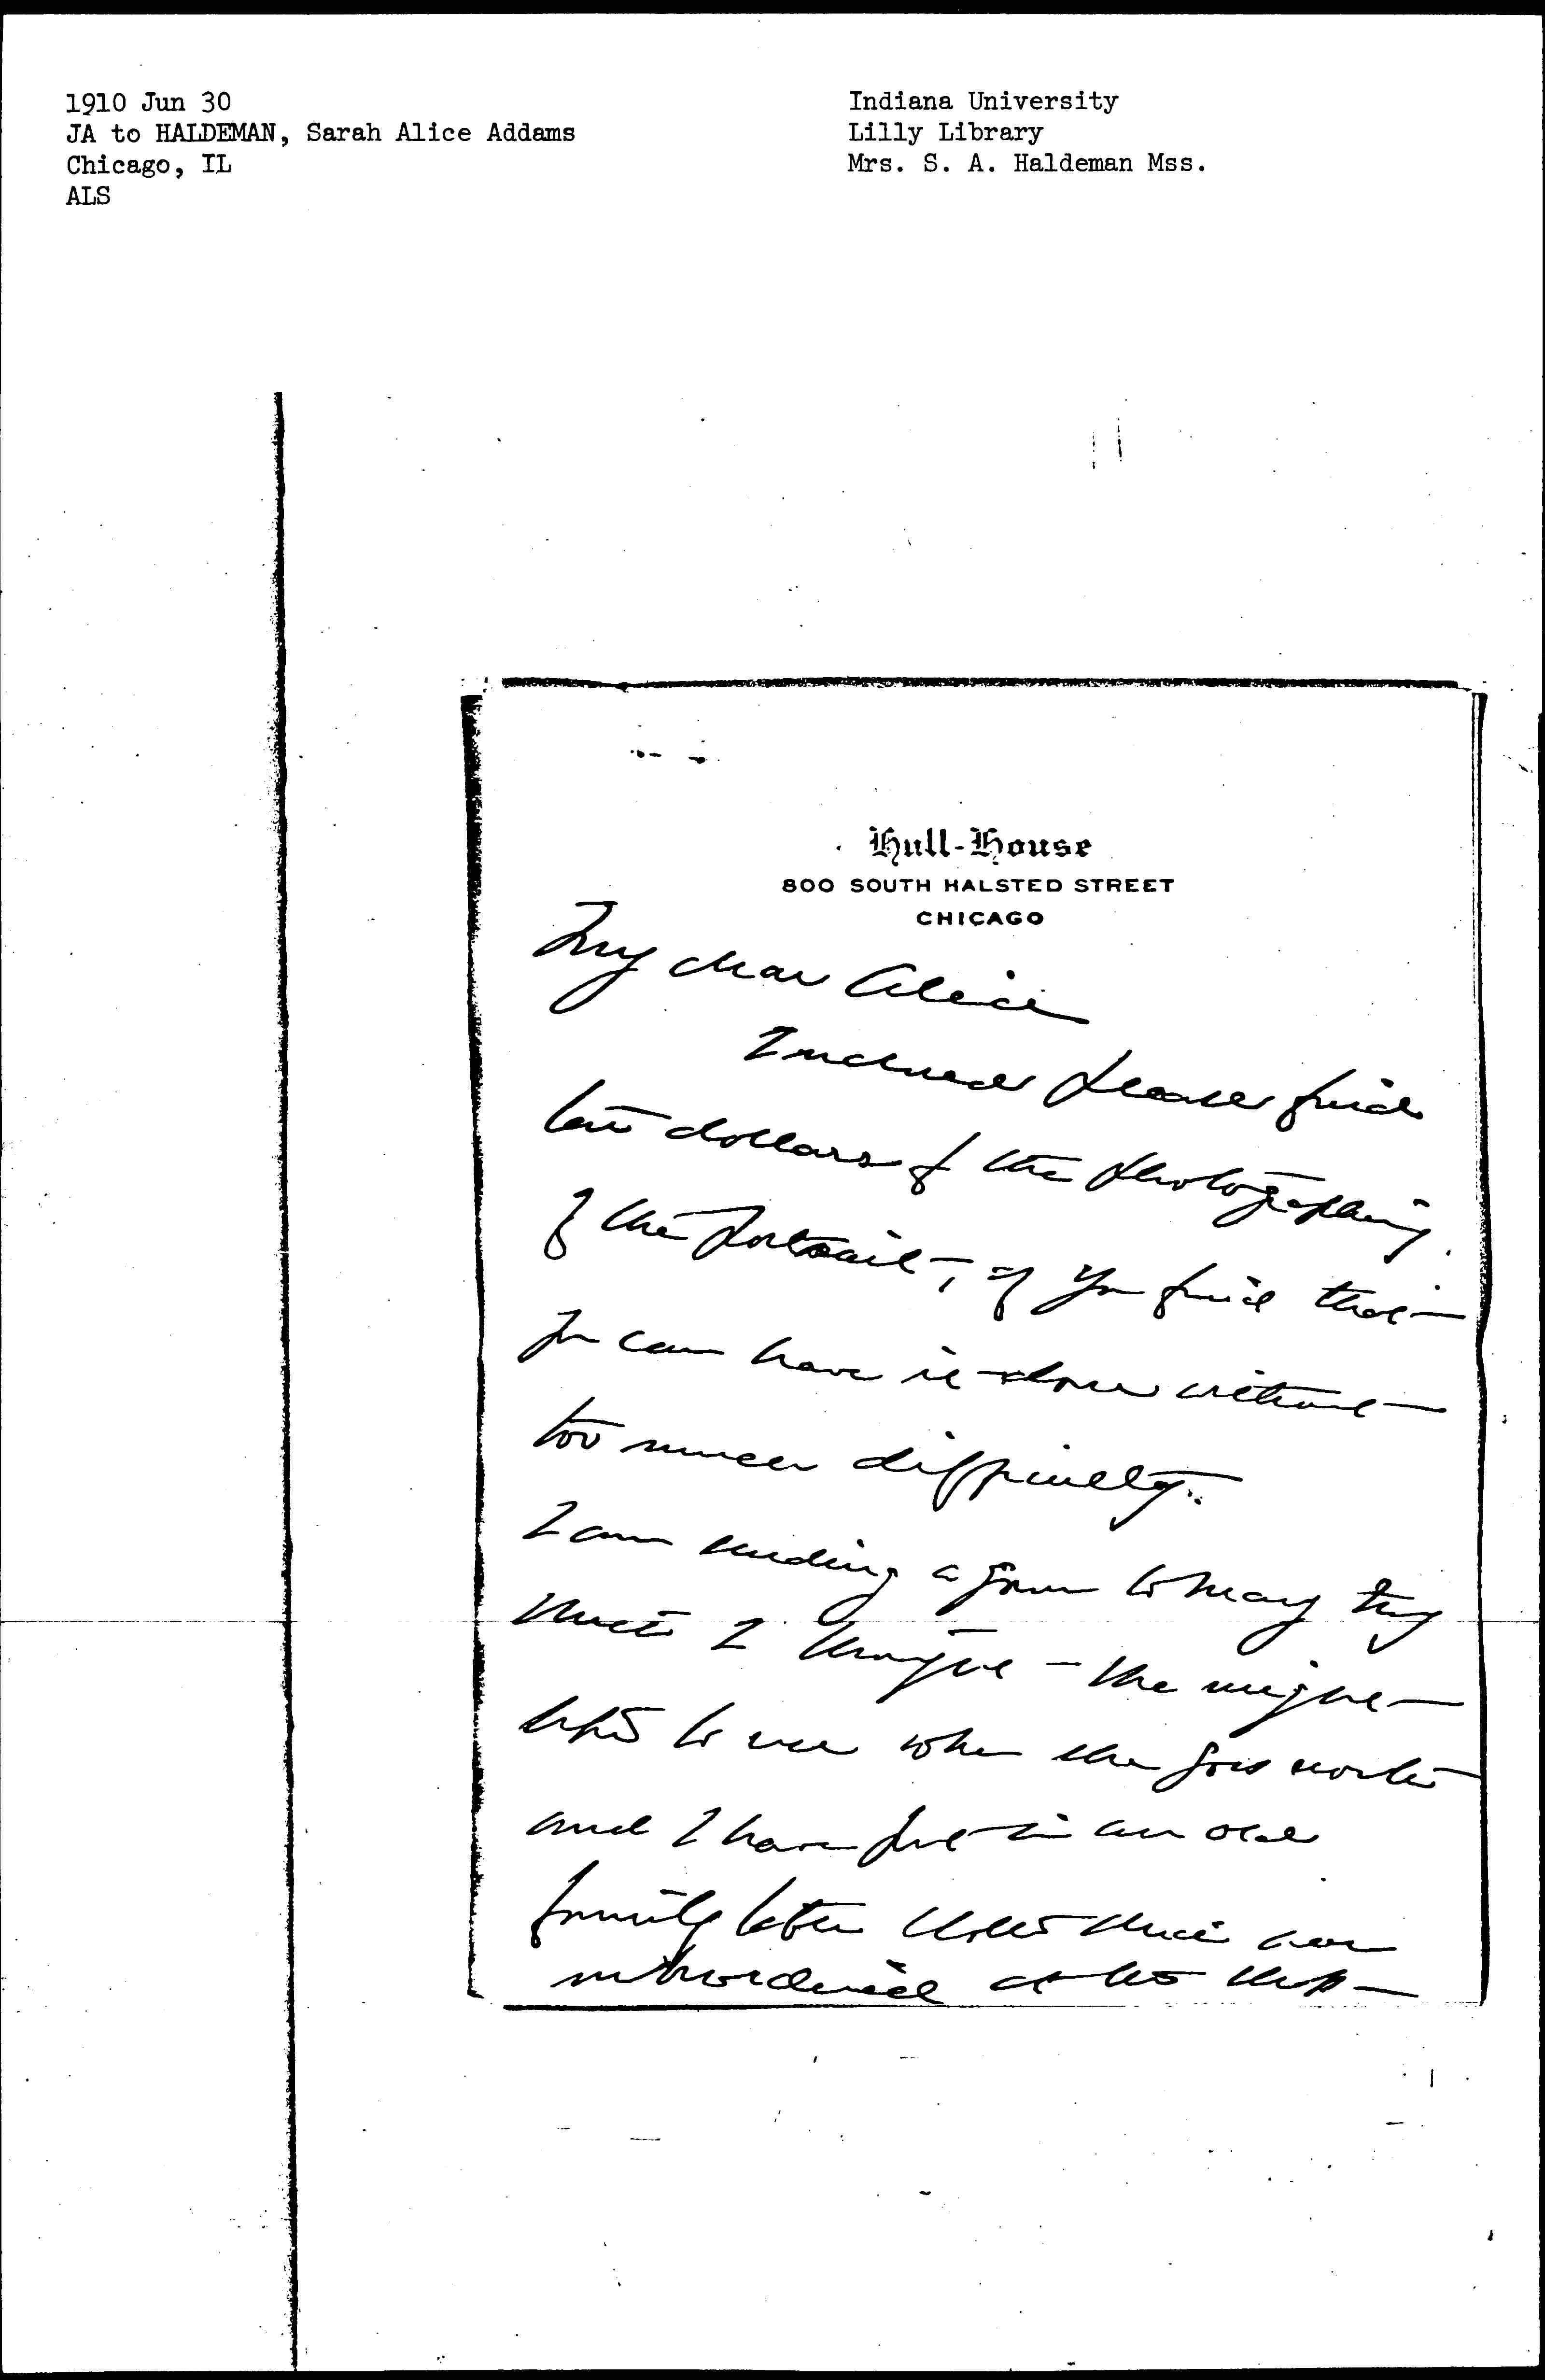 1910 Jun 30
JA to HALDEMAN, Sarah Alice Addams
Chicago, IL
ALS
Indiana University
Lilly Library
Mrs. S. A. Haldeman Mss.
Hull-House
800 SOUTH HALSTED STREET
CHICAGO
My dear Alice
Inclosed please find
ten dollars for the photographing
of the portrait, if you find that
you can have it done without
too much difficulty.
I am sending a gown to Mary
which I thought she might
like to use when she goes north
and I have put in an old
family letter